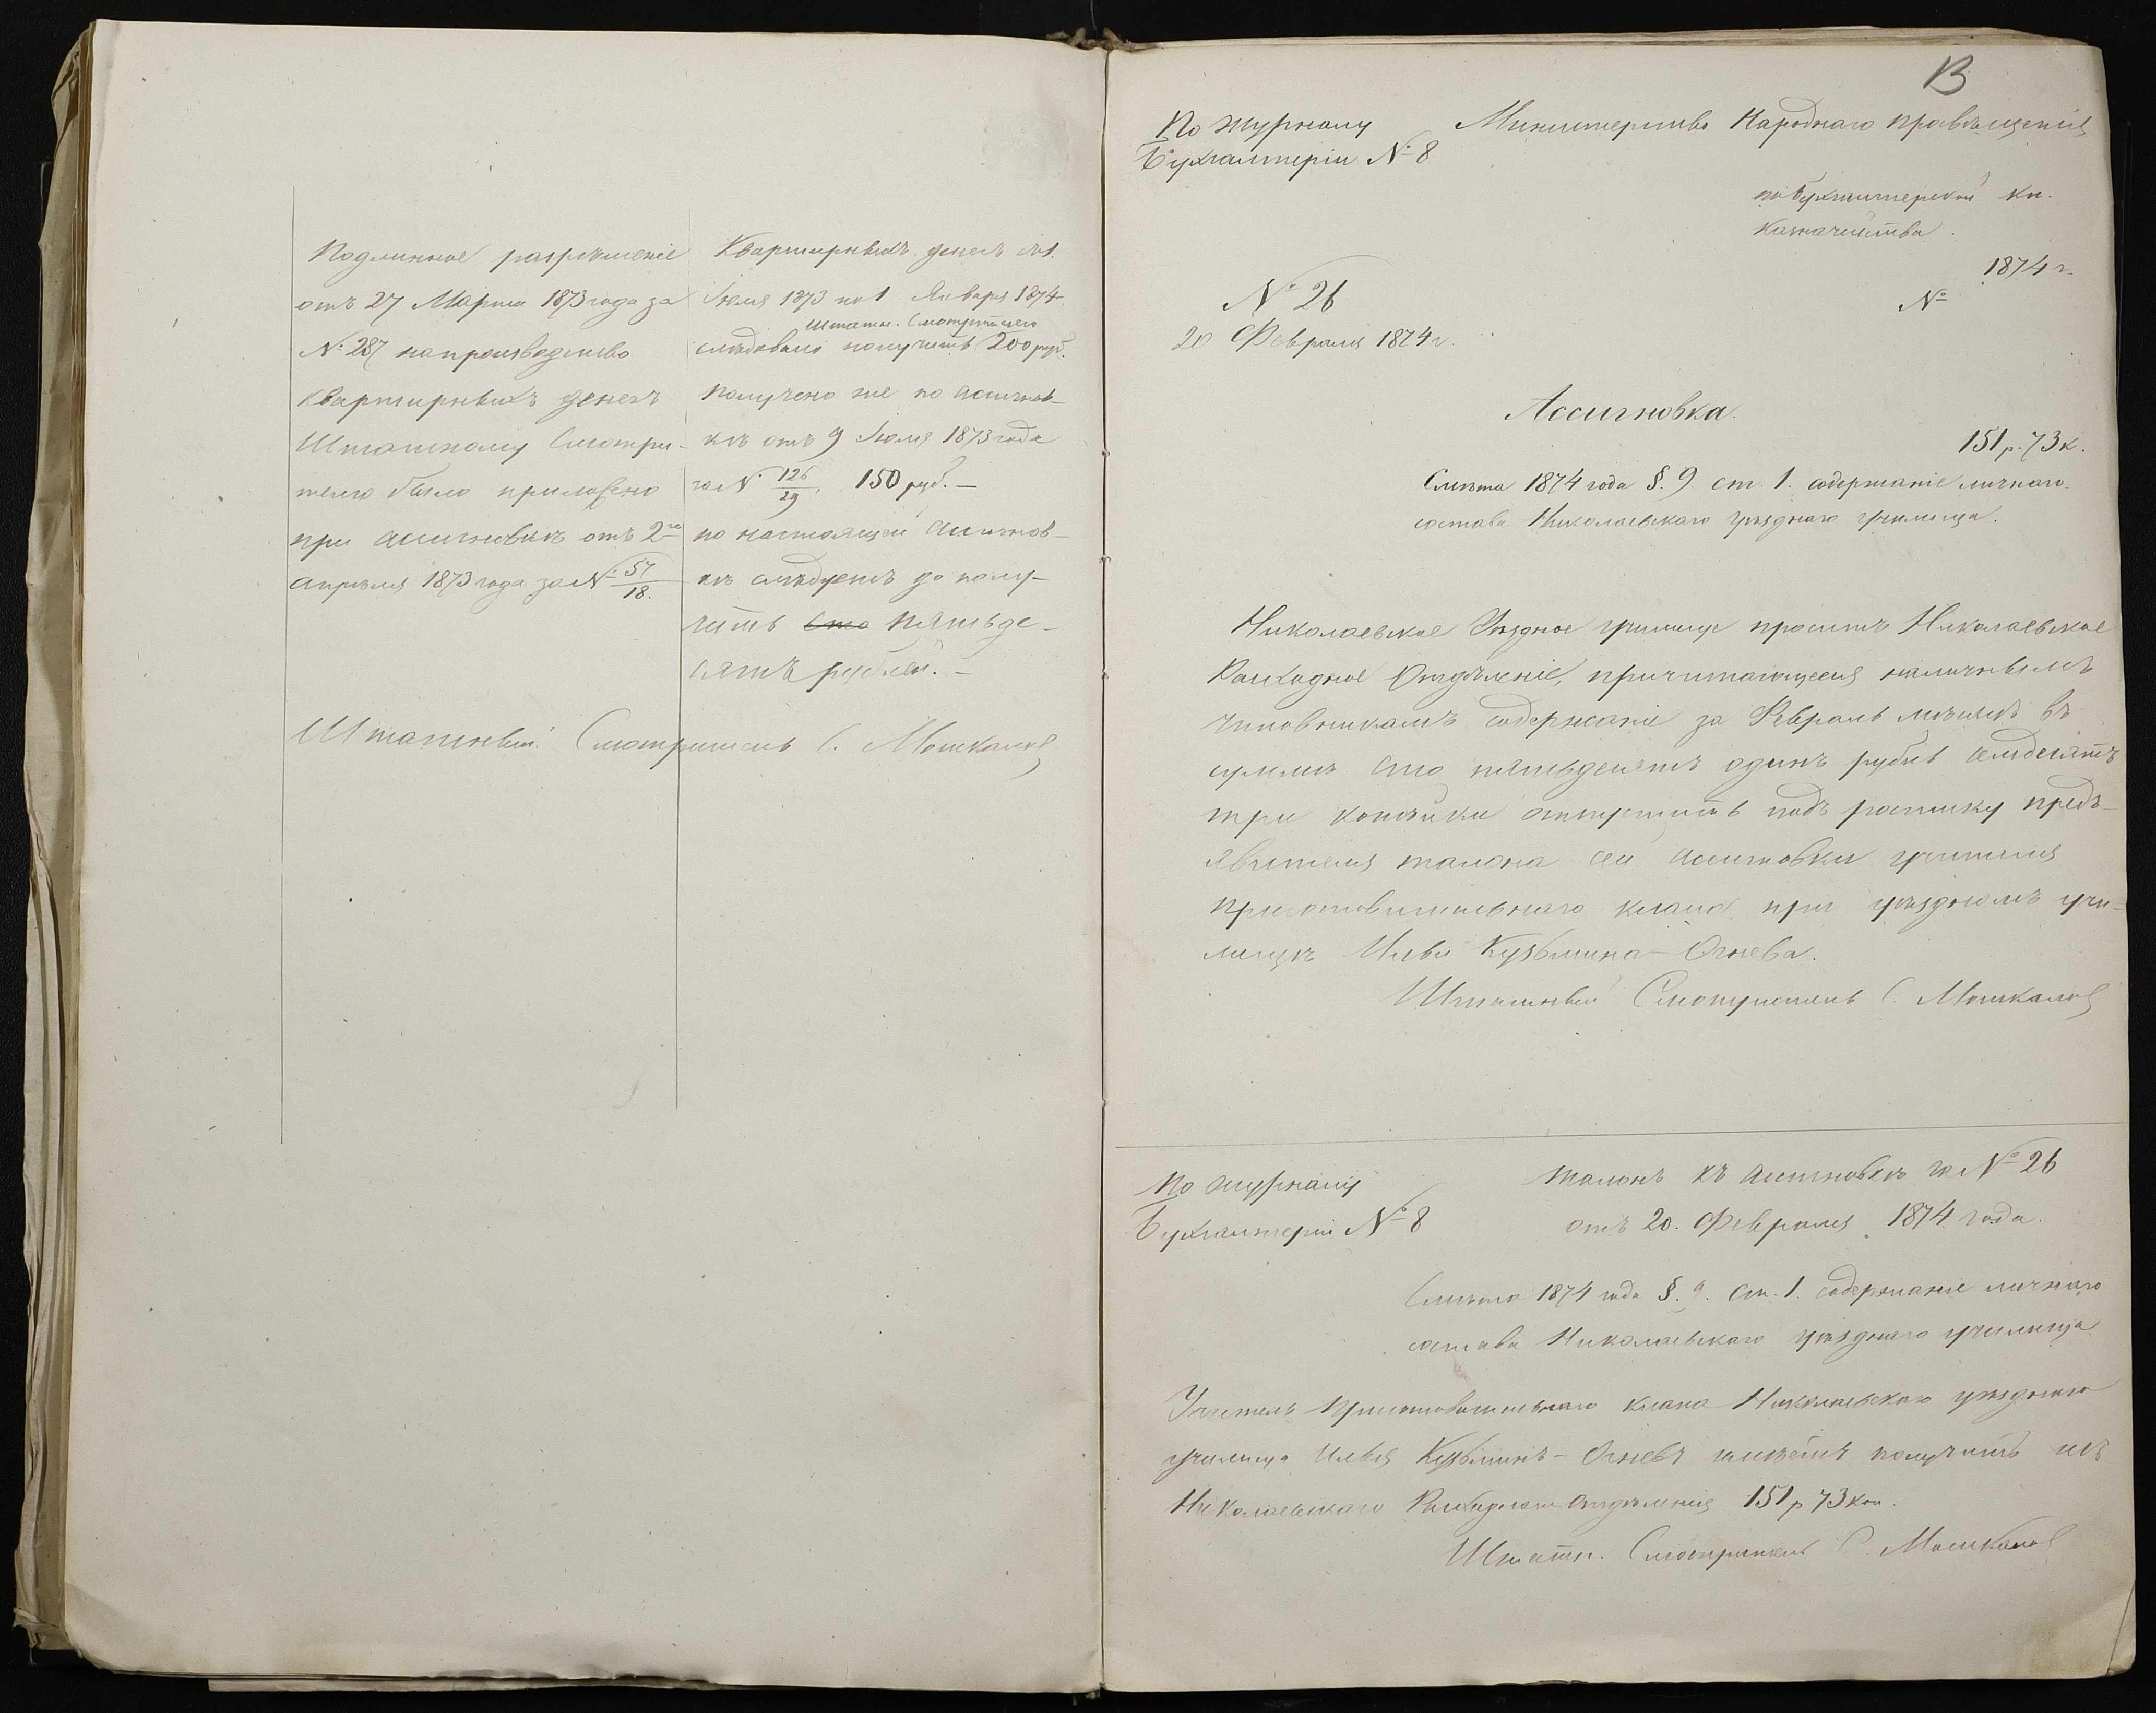 Подлинное разрѣшеніе
отъ 27 Марта 1873 года за
№ 287 на производство
квартирныхъ денегъ
Штатному Смотри-
телю было приложено
при ассигновкѣ отъ 2го
апрѣля 1873 года за № 57/18.
Квартирныхъ денегъ съ 1.
Іюля 1873 по 1 Января 1874
Штатн. Смотрителю
слѣдовало получить 200 руб.
получено же по ассигнов-
кѣ отъ 9 Іюля 1873 года
за № 126/29, 150 руб. —
по настоящей ассигнов-
кѣ слѣдуетъ до полу-
чить сто пятьде-
сятъ рублей. —
Штатный Смотритель С. Мошкалов
13
По журналу
Бухгалтеріи № 8
Министерство Народнаго просвѣщенія
по бухгалтерской кн.
казначейства.
1874 г.
№
№ 26
20 Февраля 1874 г.
Ассигновка.
151 р. 73 к.
Смѣта 1874 года §. 9 ст. 1. содержаніе личнаго
состава Николаевскаго уѣзднаго училища.
Николаевское Уѣздное училище проситъ Николаевское
Расходное Отдѣленіе, причитающееся наличнымъ
чиновникамъ содержаніе за Февраль мѣсяцъ въ
суммѣ сто пятьдесятъ одинъ рубль семдесятъ
три копѣйки отпустить подъ росписку предъ-
явителя талона сей ассигновки учителя
приготовительнаго класса при уѣздномъ учи-
лищѣ Ильи Кузьмина-Огнева.
Штатный Смотритель С. Мошкалов
По журналу
Бухгалтеріи № 8
Талонъ къ ассигновкѣ за № 26
отъ 20. Февраля 1874 года.
Смѣта 1874 года §. 9. ст. 1. содержаніе личнаго
состава Николаевскаго уѣзднаго училища
Учитель приготовительнаго класса Николаевскаго уѣзднаго
училища Илья Кузьминъ-Огневъ имѣетъ получить изъ
Николаевскаго Расходнаго Отдѣленія 151 р 73 коп.
Штатн. Смотритель С. Мошкалов